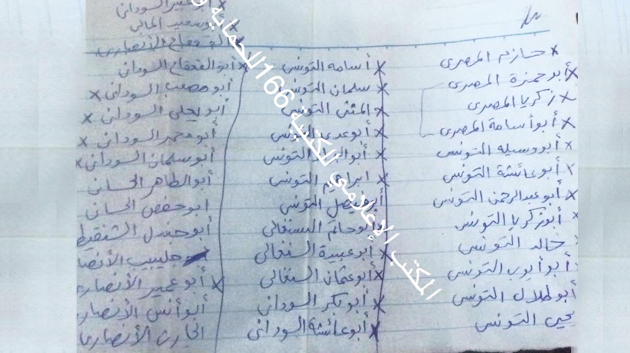 حازم المصري
أبو حمزة المصري
زكريا المصري
أبو أسامة المصري
أبو وسيله التونسي
أبو عائشة التونسي
أبو عبد الرحمن التونسي
أبو زكريا التونسي
خالد التونسي
أبو أيوب التونسي
أبو طلال التونسي
يحي التونسي
أسامه التونسي
سلمان التونسي
المثنى التونسي
أبو عدي التونسي
التونسي
ابراهيم التونسي
التونسي
أبو حاتم السنغالي
أبو عبيدة السنغالي
أبو عثمان السنغالي
أبو بكر السوداني
أبو عائشة السوداني
السوداني
أبو سعيد المالي
أبو القعقاع الأنصاري
أبو القعقاع السوداني
أبو مصعب السوداني
أبو يحلى السوداني
أبو معمر السوداني
أبو سلمان السوداني
أبو الطاهر الحساني
أبو حفص الحساني
أبو حنضل الشنقيط
حبيب الأنصا
أبو عمير الأنصاري
أبو أنس الأنصاري
الحارث الأنصاري
المكتب الإعلامي للكتيبة 166 للحماية و